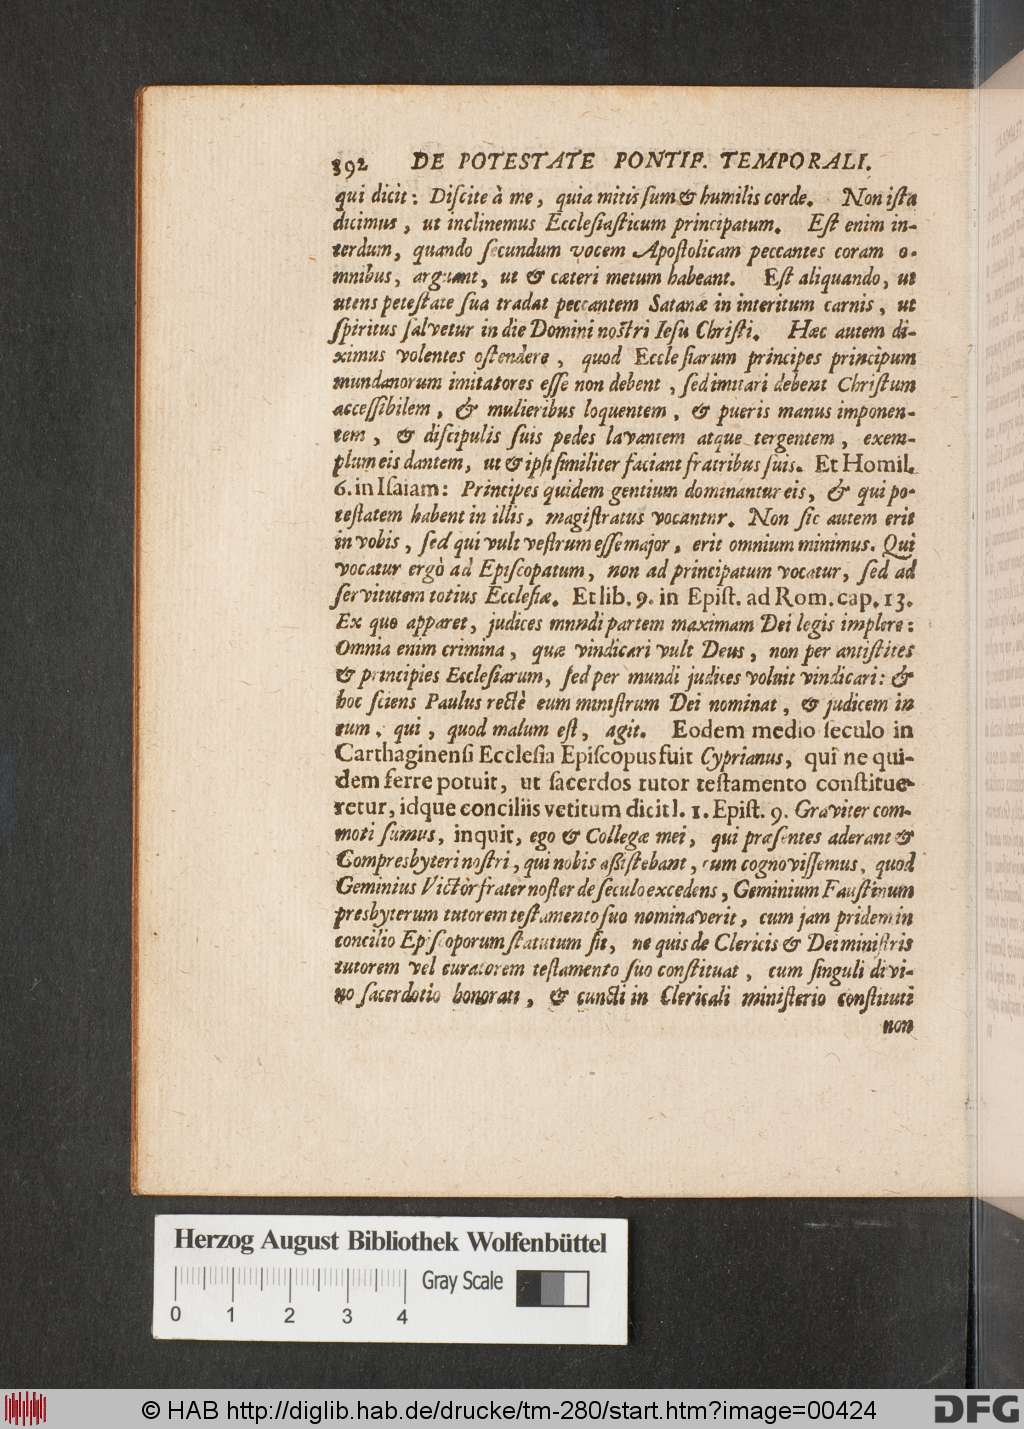 392 DE POTESTATE PONTIF. TEMPORALI.
qui dicit: Diſcite à me, quia mitis ſum & humilis corde. Non iſta
dicimus, ut inclinemus Eccleſiaſticum principatum. Eſt enim in-
terdum, quando ſecundum vocem Apoſtolicam peccantes coram o-
mnibus, arguunt, ut & cæteri metum habeant. Eſt aliquando, ut
utens poteſtate ſua tradat peccantem Satanæ in interitum carnis, ut
ſpiritus ſalvetur in die Domini noſtri Ieſu Chriſti. Hæc autem di-
ximus volentes oſtendere, quod Eccleſiarum principes principum
mundanorum imitatores eſſe non debent, ſed imitari debent Chriſtum
acceſſibilem, & mulieribus loquentem, & pueris manus imponen-
tem, & diſcipulis ſuis pedes lavantem atque tergentem, exem-
plum eis dantem, ut & ipſi ſimiliter faciant fratribus ſuis. Et Homil.
6. in Iſaiam: Principes quidem gentium dominantur eis, & qui po-
teſtatem habent in illis, magiſtratus vocantur. Non ſic autem erit
in vobis, ſed qui vult veſtrum eſſe major, erit omnium minimus. Qui
vocatur ergò ad Epiſcopatum, non ad principatum vocatur, ſed ad
ſervitutem totius Eccleſiæ. Et lib. 9. in Epiſt. ad Rom. cap. 13.
Ex quo apparet, judices mundi partem maximam Dei legis implere:
Omnia enim crimina, quæ vindicari vult Deus, non per antiſtites
& principies Eccleſiarum, ſed per mundi judices voluit vindicari: &
hoc ſciens Paulus rectè eum miniſtrum Dei nominat, & judicem in
eum, qui, quod malum eſt, agit. Eodem medio ſeculo in
Carthaginenſi Eccleſia Epiſcopus fuit Cyprianus, qui ne qui-
dem ferre potuit, ut ſacerdos tutor teſtamento conſtitue-
retur, idque conciliis vetitum dicit l. 1. Epiſt. 9. Graviter com-
moti ſumus, inquit, ego & Collegæ mei, qui præſentes aderant &
Compresbyteri noſtri, qui nobis aſſiſtebant, cum cognoviſſemus, quod
Geminius Victor frater noſter de ſeculo excedens, Geminium Fauſtinum
presbyterum tutorem teſtamento ſuo nominaverit, cum jam pridem in
concilio Epiſcoporum ſtatutum ſit, ne quis de Clericis & Dei miniſtris
tutorem vel curatorem teſtamento ſuo conſtituat, cum ſinguli divi-
no ſacerdotio honorati, & cuncti in Clericali miniſterio conſtituti
non
Herzog August Bibliothek Wolfenbüttel
Gray Scale
0 1 2 3 4
© HAB http://diglib.hab.de/drucke/tm-280/start.htm?image=00424
DFG